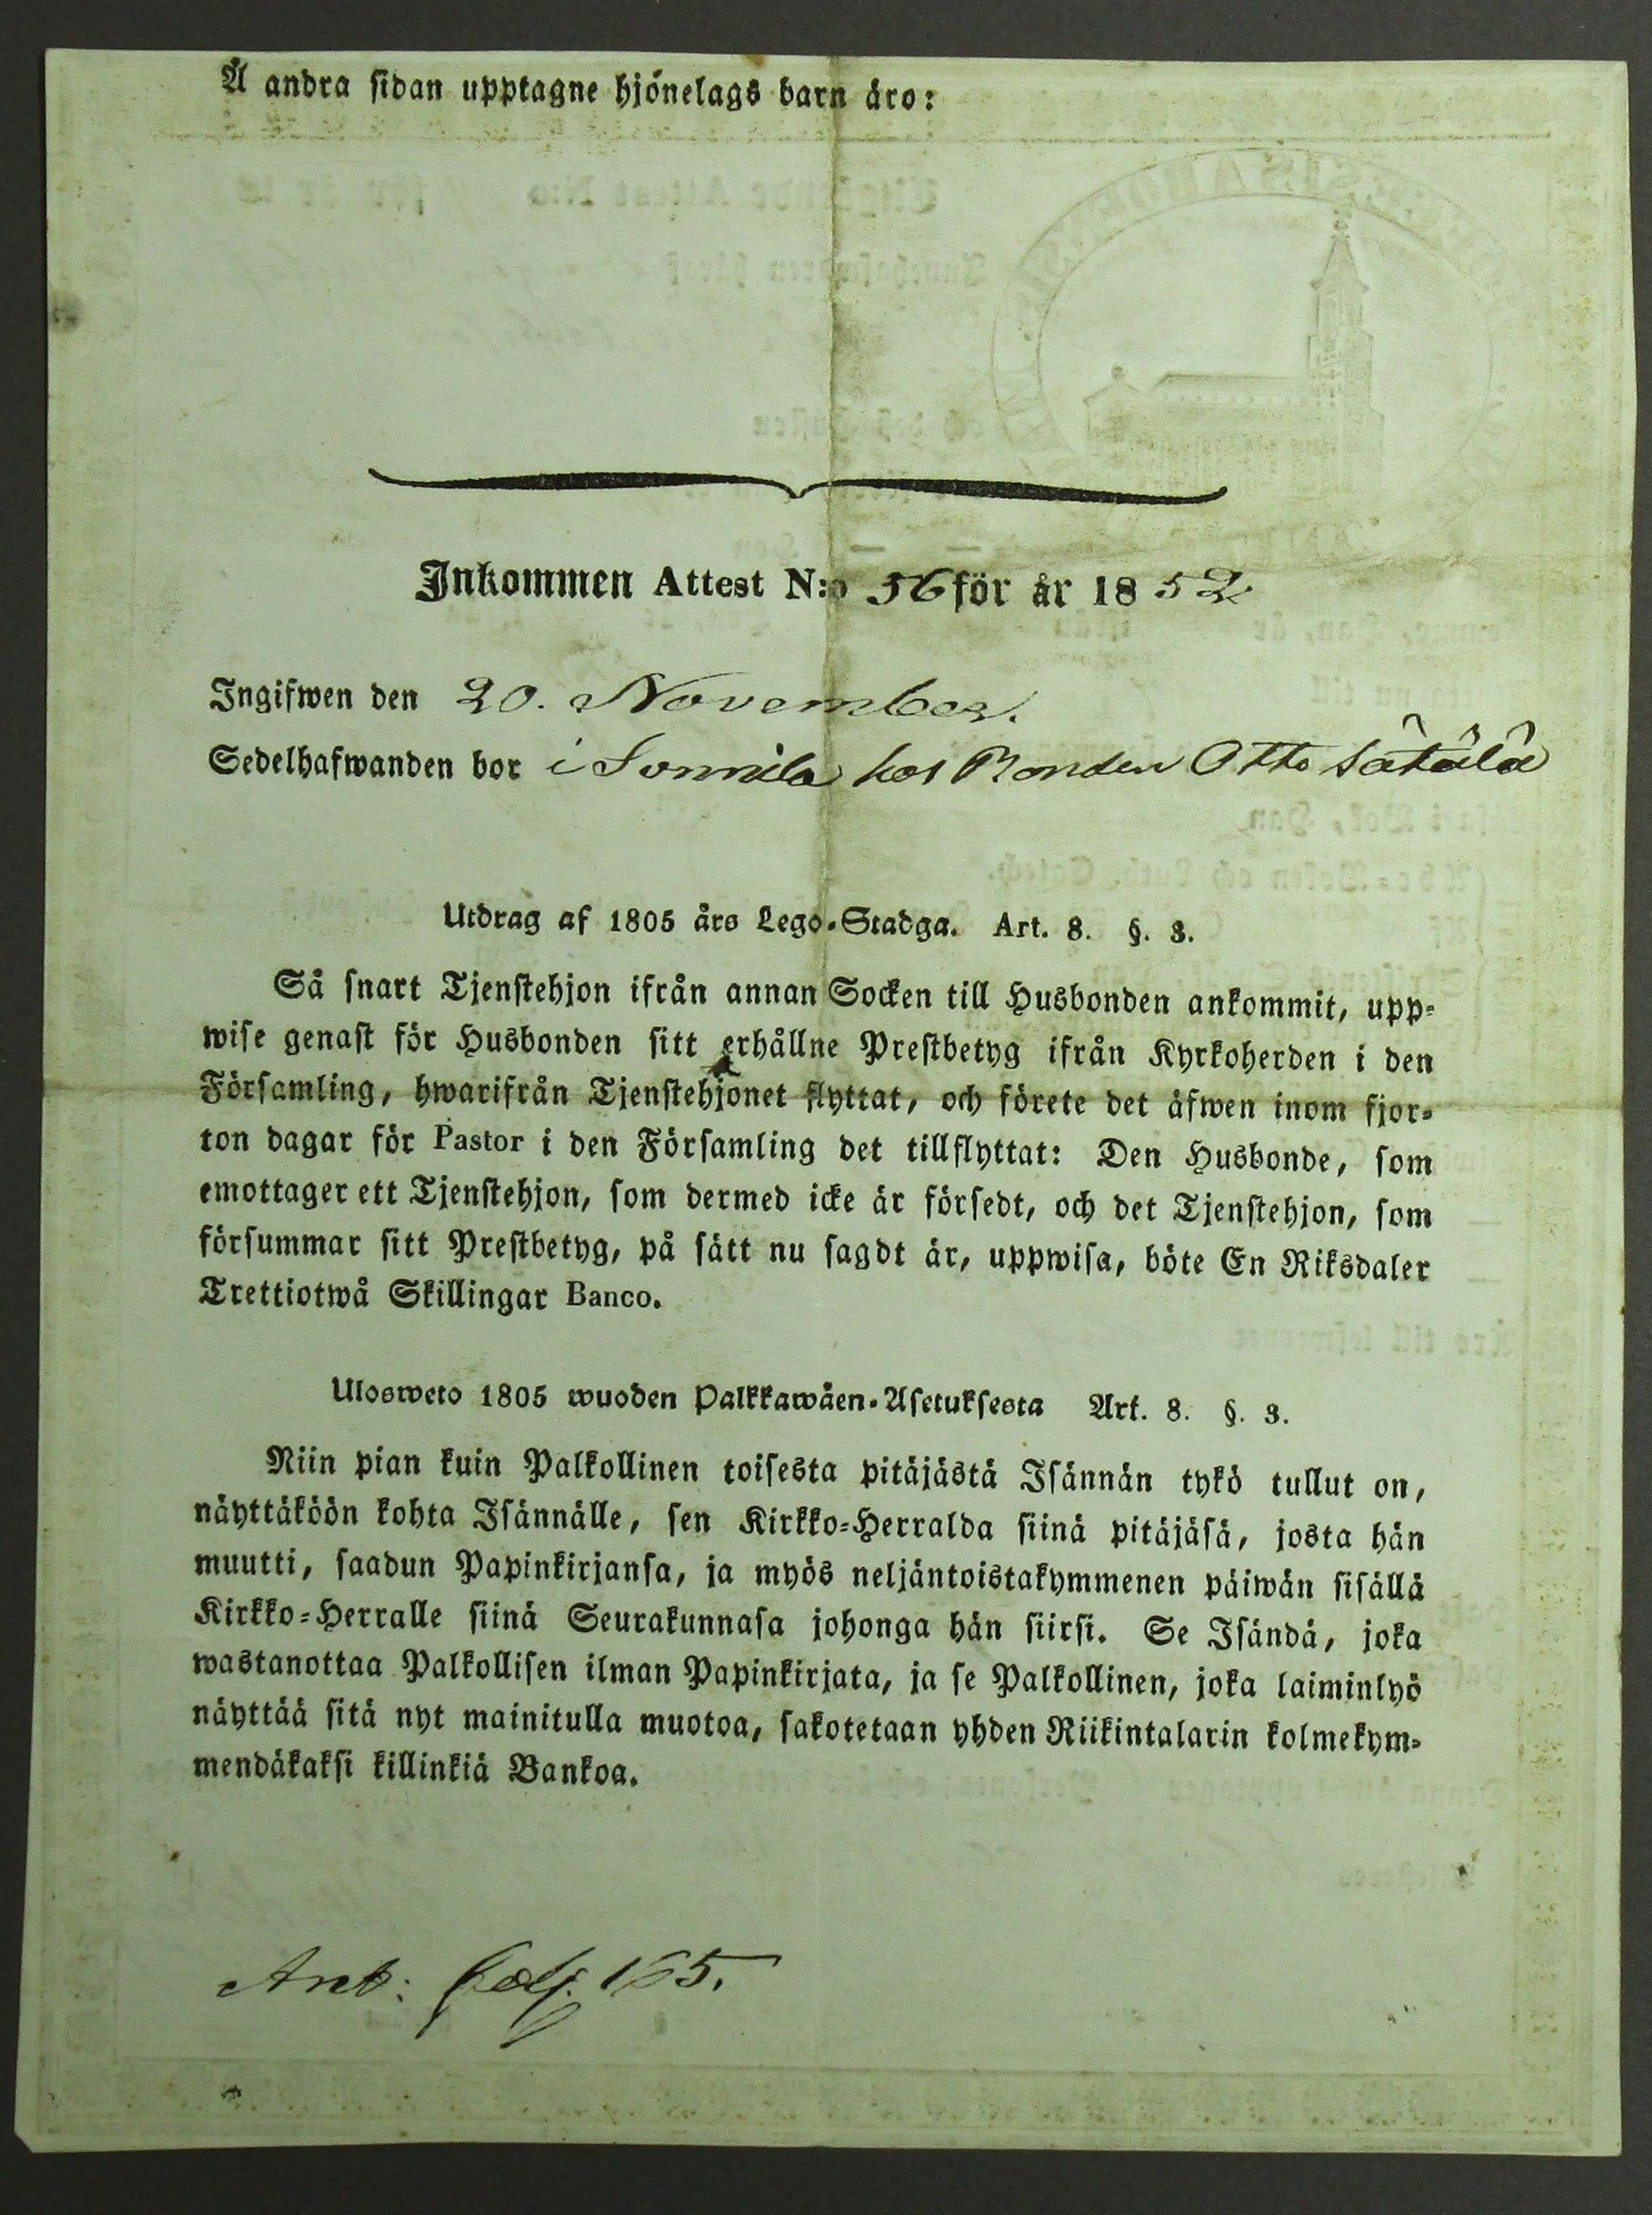 Å andra sidan upptagne hjónelags barn äro:
Inkommen Attest N:o 56 för år 1852
Ingifwen den 20. November.
Sedelhafwanden bor i Sonnila hos Bonden Otto Sätälä
Utdrag af 1805 års Lego-Stadga. Art. 8. §. 3.
Så snart Tjenstehjon ifrån annan Socken till Husbonden ankommit, upp-
wise genast för Husbonden sitt erhållne Prestbetyg ifrån Kyrkoherden i den
Församling, hwarifrån Tjenstehjonet flyttat, och förete det äfwen inom fjor-
ton dagar för Pastor i den Församling det tillflyttat: Den Husbonde, som
emottager ett Tjenstehjon, som dermed icke är försedt, och det Tjenstehjon, som
försummar sitt Prestbetyg, på sätt nu sagdt är, uppwisa, böte En Riksdaler
Trettiotwå Skillingar Banco.
Ulosweto 1805 wuoden Palkkawäen-Asetuksesta Art. 8. §. 3.
Niin pian kuin Palkollinen toisesta pitäjästä Isännän tykö tullut on,
näyttäköön kohta Isännälle, sen Kirkko-Herralda siinä pitäjäsä, josta hän
muutti, saadun Papinkirjansa, ja myös neljäntoistakymmenen päiwän sisällä
Kirkko-Herralle siinä Seurakunnasa johonga hän siirsi. Se Isändä, joka
wastanottaa Palkollisen ilman Papinkirjata, ja se Palkollinen, joka laiminlyö
näyttää sitä nyt mainitulla muotoa, sakotetaan yhden Riikintalarin kolmekym-
mendäkaksi killinkiä Bankoa.
165.